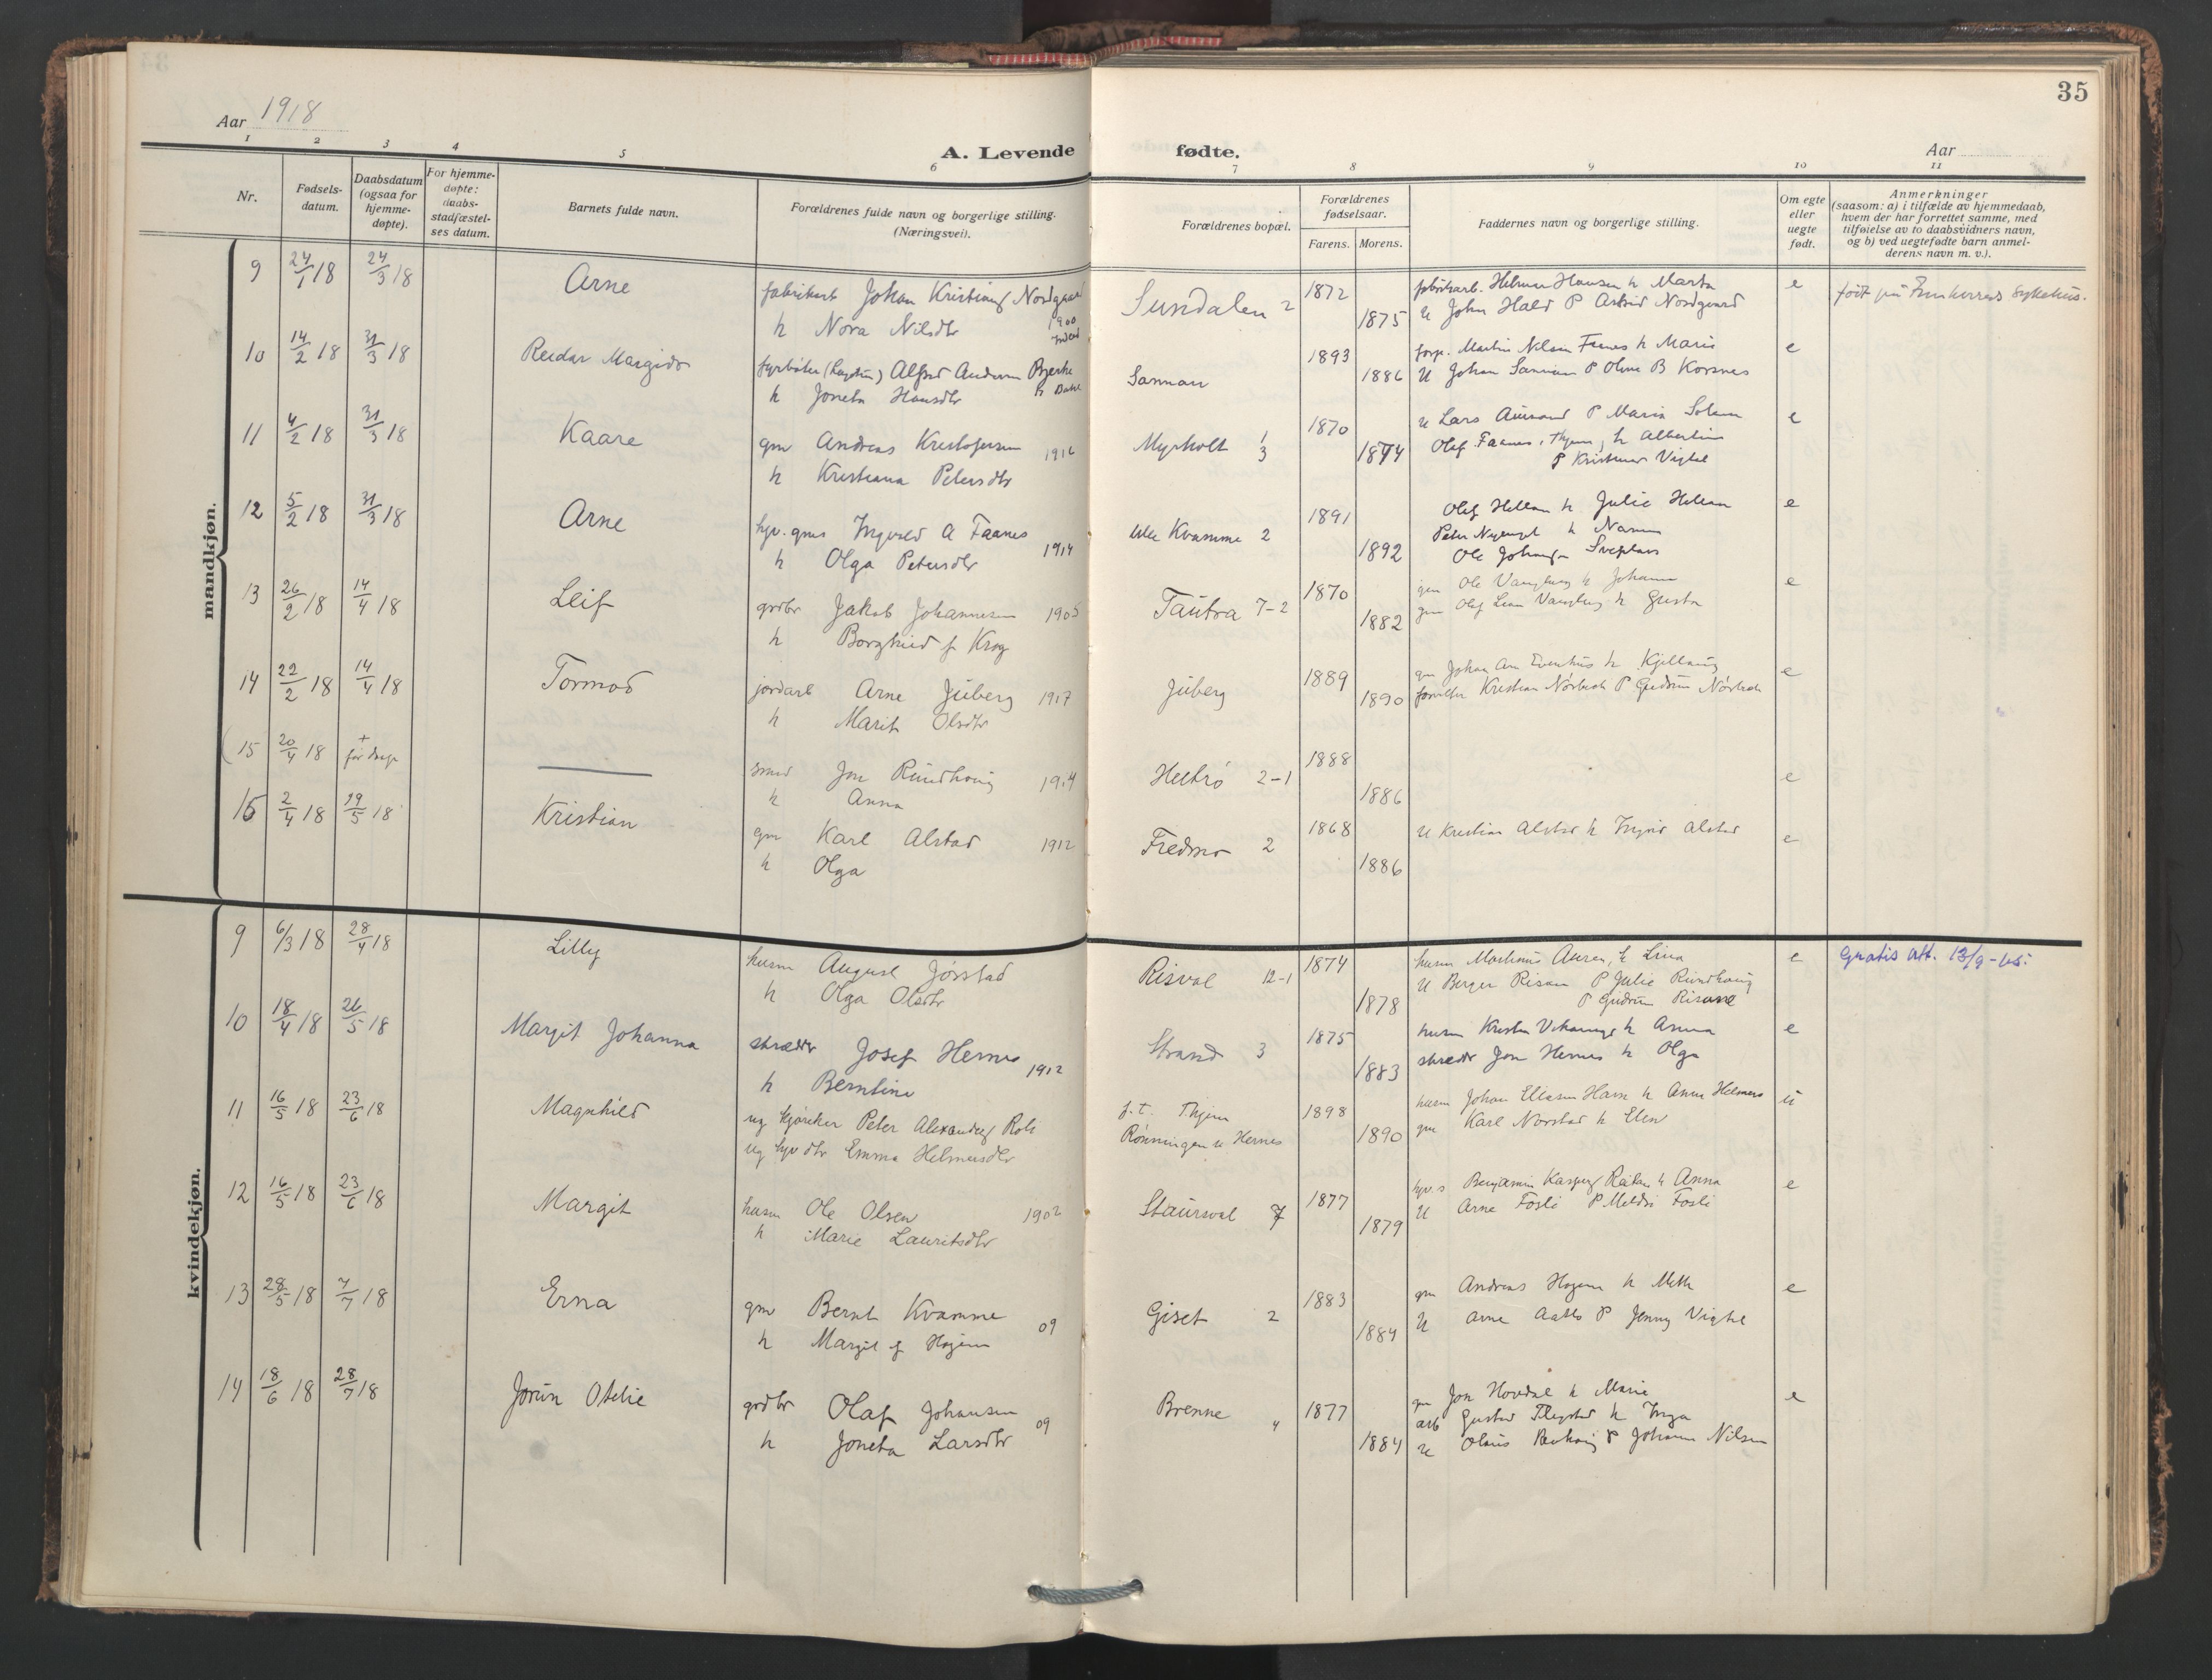 35
Aar 1918
A. Levende fødte.
Aar
1 2 3 4 5 6 7 8 9 10 11
Nr.
Fødsels-
datum.
Daabsdatum
(ogsaa for
hjemme-
døpte).
For hjemme-
døpte:
daabs-
stadfæstel-
ses datum.
Barnets fulde navn.
Forældrenes fulde navn og borgerlige stilling.
(Næringsvei).
Forældrenes bopæl.
Forældrenes
fødselsaar.
Farens. Morens.
Faddernes navn og borgerlige stilling.
Om egte
eller
uegte
født.
Anmerkninger
(saasom: a) i tilfælde av hjemmedaab,
hvem der har forrettet samme, med
tilføielse av to daabsvidners navn,
og b) ved uegtefødte barn anmel-
derens navn m. v.).
mandkjøn.
9 24/1 18 24/3 18 Arne fabrikarb Johan Kristians Nordgaard Sundalen 2 1872 fabrikarb. Helmer Hansen h Marta e
h Nora Nilsdtr 1900 1875 U John Hald P Astrid Nordgaard
10 14/2 18 31/3 18 Reidar Margido fyrbøter Alfred Andersen Bjerke Sannan 1893 Martin Nilsen Faanes h Marie e
h Joneta Hansdtr 1886 U Johan Sannan P Oline B Korsnes
11 4/2 18 31/3 18 Kaare gm Andreas Kristofersen 1916 Myrholt 1/3 1870 U Lars Aursand P Maria Solem e
h Kristiana Petersdtr 1874 Olaf Faanes, Thjem, h Albertine
P Kristine Vigtel
12 5/2 18 31/3 18 Arne hjv. gms Ingvald A Faanes Kvamme 2 1891 Olaf Hellan h Julie Hellan e
h Olga Petersdtr 1914 1892 Peter h Nanna
Ole Johans
13 26/2 18 14/4 18 Leif grdbr Jakob Johannesen 1905 Tautra 7-2 1870 gm Ole Vangberg h Johanna e
h Borghild f Krog 1882 gm Olaf Vangberg h Gusta
14 22/2 18 14/4 18 Tormod jordarb Arne Juberg 1917 Juberg 1889 gm Johan h e
h Marit Olsdtr 1890 Kristian Nørbech P Gudrun Nørbech
(15 20/4 18 + før daap — smed Jon Rundhaug 1914 Helbrø 2-1 1888 e
h Anna 1886
16 2/4 18 19/5 18 Kristian gm Karl Alstad 1912 Fredmo 2 1868 U Kristian Alstad h Ingrid Alstad e
h Olga 1886
kvindekjøn.
9 6/3 18 28/4 18 Lilly husm August Jørstad Risval 12-1 1874 husm Martinus Auran, h Lina e Gratis att. 13/9-65.
h Olga Olsdtr 1878 U Berger Risan P Julie Rundhaug
P Gudrun Risan
10 18/4 18 26/5 18 Margit Johanna skrædr Josef Hernes 1912 Strand 3 1875 husm h Anna e
h Berntine 1883 skrædr Jon Hernes h Olga
11 16/5 18 23/6 18 Magnhild ug Peter Alexanders f. t. Thjem 1898 husm Johan Ellesen h Anna Helmers u
ug hjv dtr Emma Helmersdtr Rønningen u Hernes 1890 gm Karl Norstad h Elen
12 16/5 18 23/6 18 Margit husm Ole Olsen 1902 Staursval 7 1877 Benjamin Kaspers h Anna e
h Marie Lauritsdtr 1879 U Arne Fosli P Fosli
13 28/5 18 7/7 18 Erna gm Bernt Kvamme 09 Giset 2 1883 gm Andreas Hojem h e
h Margit f Hojem 1884 U Arne P Jenny Vigtel
14 18/6 18 28/7 18 Jorun Otelie grdbr Olaf Johansen 09 Brenne 4 1877 gm Jon Hovdal h Marie e
h Joneta Larsdtr 1884 arb Gustav h Inga
U Olaus P Johanna Nilsen